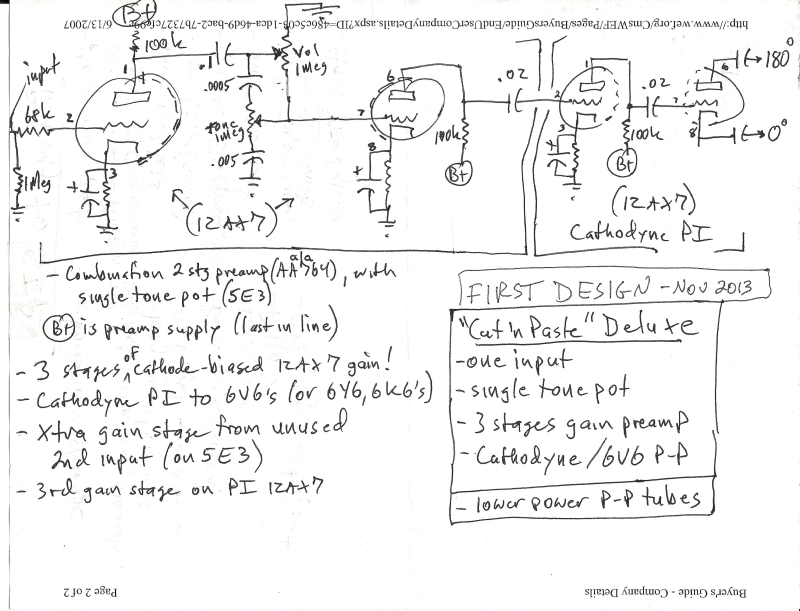 6/13/2007
B+
100k
input
68k
1Meg
1
2
3
.1
.0005
tone
1Meg
.005
vol
1Meg
(12AX7)
6
7
8
100k
B+
.02
1
2
3
100k
B+
.02
6
7
8
180°
0°
(12AX7)
Cathodyne PI
- Combination 2 stg preamp (AA764), with
a/a
single tone pot (5E3)
B+ is preamp supply (last in line)
- 3 stages of cathode-biased 12AX7 gain!
- Cathodyne PI to 6V6's (or 6Y6, 6K6's)
- Xtra gain stage from unused
2nd input (on 5E3)
- 3rd gain stage on PI 12AX7
FIRST DESIGN - NOV 2013
"Cut 'n Paste" Deluxe
- one input
- single tone pot
- 3 stages gain preamp
- Cathodyne/6V6 P-P
- lower power P-P tubes
Buyer's Guide - Company Details
Page 2 of 2